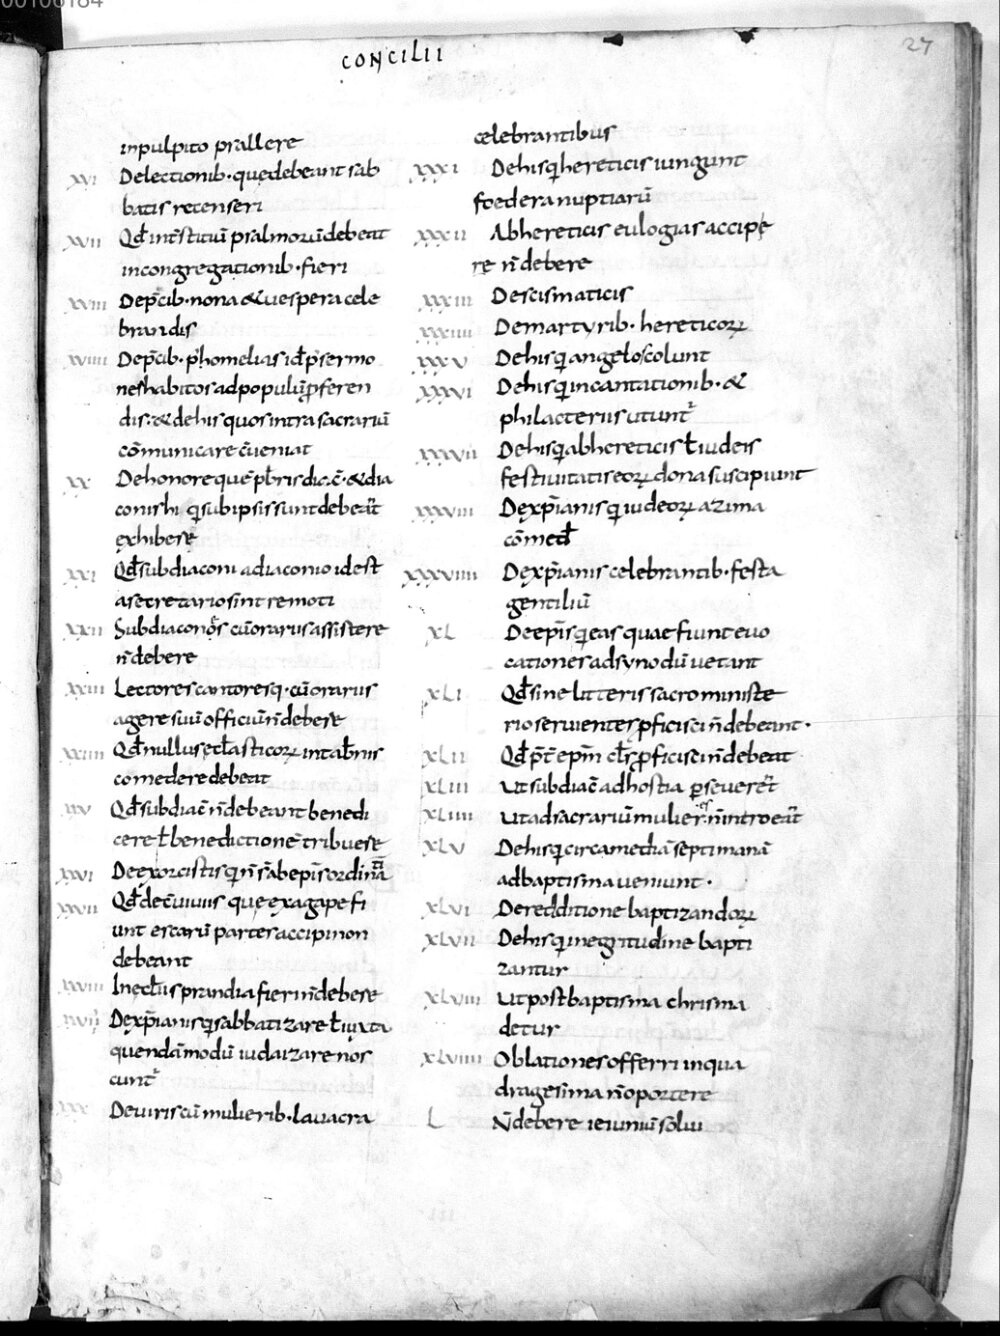 00106184
CONCILII
27
inpulpito psallere
xvi Delectionib· quedebeant sab
batis recenseri
xvii Qđ intstituū psalmorū debeat
incongregationib· fieri
xviii Dep̄cib· nona & uespera cele
brandis
xviiii Dep̄cib· p̄homelias id p̄sermo
nes habitos adpopulū p̄feren
dis· & dehis quos intra sacrariū
cōmunicare c̄ueniat
xx Dehonore quē p̄bris diac̄ & dia
conis hi qui subipsis sunt debeāt
exhibere
xxi Qđ subdiaconi adiaconio idest
asecretario sint remoti
xxii Subdiaconos cū orariis assistere
n̄ debere
xxiii Lectores cantores q· cū orariis
agere suū officiū n̄ debere
xxiiii Qđ nullus eccłasticorꝝ intab̄nis
comedere debeat
xxv Qđ subdiac̄ n̄ debeant benedi
cere ł benedictionē tribuere
xxvi Deexorcistis qui n̄ s̄ abepis ordināti
xxvii Qđ dec̄uiuiis que exagape fi
unt escarū partes accipi non
debeant
xxviii Ineccłiis prandia fieri n̄ debere
xxviiii Dexp̄ianis qui sabbatizare ł iuxta
quendā modū iudaizare nos
cunt᷑
xxx Deuiris cū mulierib· lauacra
celebrantibus
xxxi Dehis qui hereticis iungunt
foedera nuptiarū
xxxii Abhereticis eulogias accipe
re n̄ debere
xxxiii Descismaticis
xxxiiii Demartyrib· hereticorꝝ
xxxv Dehis qui angelos colunt
xxxvi Dehis qui incantationib· &
philacteriis utunt᷑
xxxvii Dehis qui abhereticis ł iudeis
festiuitatis eorꝝ dona suscipiunt
xxxviii Dexp̄ianis qui iudeorꝝ azima
cōmed̄
xxxviiii Dexp̄ianis celebrantib· festa
gentiliū
xL Deepis̄ qui eas quae fiunt euo
cationes adsynodū uetant
xLi Qđ sine litteris sacro ministe
rio seruientes p̄ficisci n̄ debeant·
xLii Qđ p̄t ep̄m cłrs p̄ficisci n̄ debeat
xLiii Ut subdiac̄ adhostia p̄seueret
xLiiii Ut adsacrariū mulieres n̄ introeāt
xLv Dehis qui circa mediā septimanā
adbaptisma ueniunt·
xLvi Deredditione baptizandorꝝ
xLvii Dehis qui inegritudine bapti
zantur
xLviii Ut post baptisma chrisma
detur
xLviiii Oblationes offerri inqua
dragesima n̄ oportere
L N̄ debere ieiuniū solui